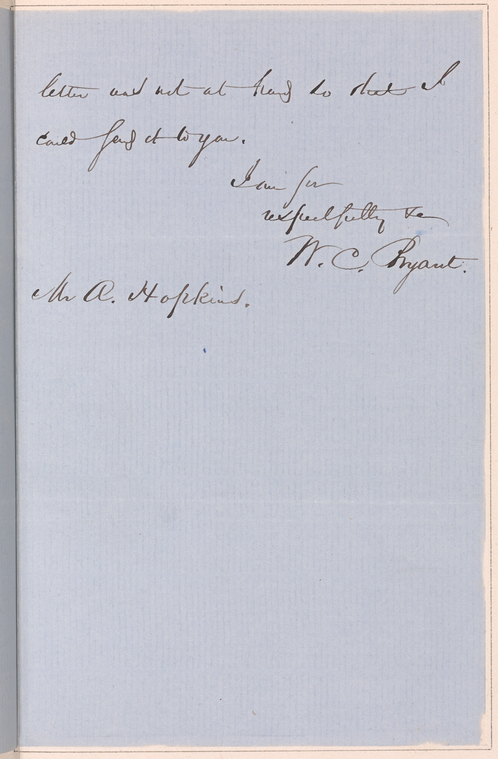 letter was not at hand so that I
could send it to you.
I am Sir
respectfully &c
W. C. Bryant.
Mr A. Hopkins.